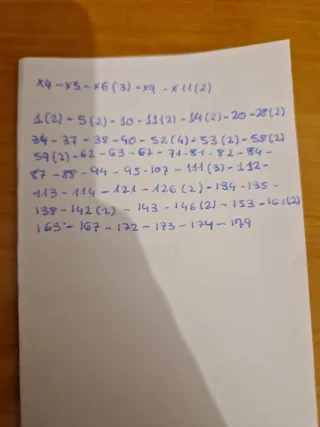 x4 - x5 - x6 (3) - x9 - x11 (2)
1 (2) - 5 (2) - 10 - 11 (2) - 14 (2) - 20 - 28 (2)
34 - 37 - 38 - 40 - 52 (4) - 53 (2) - 58 (2)
59 (2) - 62 - 63 - 67 - 71 - 81 - 82 - 84 -
87 - 88 - 94 - 95 - 107 - 111 (3) - 112 -
113 - 114 - 121 - 126 (2) - 134 - 135 -
138 - 142 (2) - 143 - 146 (2) - 153 - 161 (2)
163 - 167 - 172 - 173 - 174 - 179